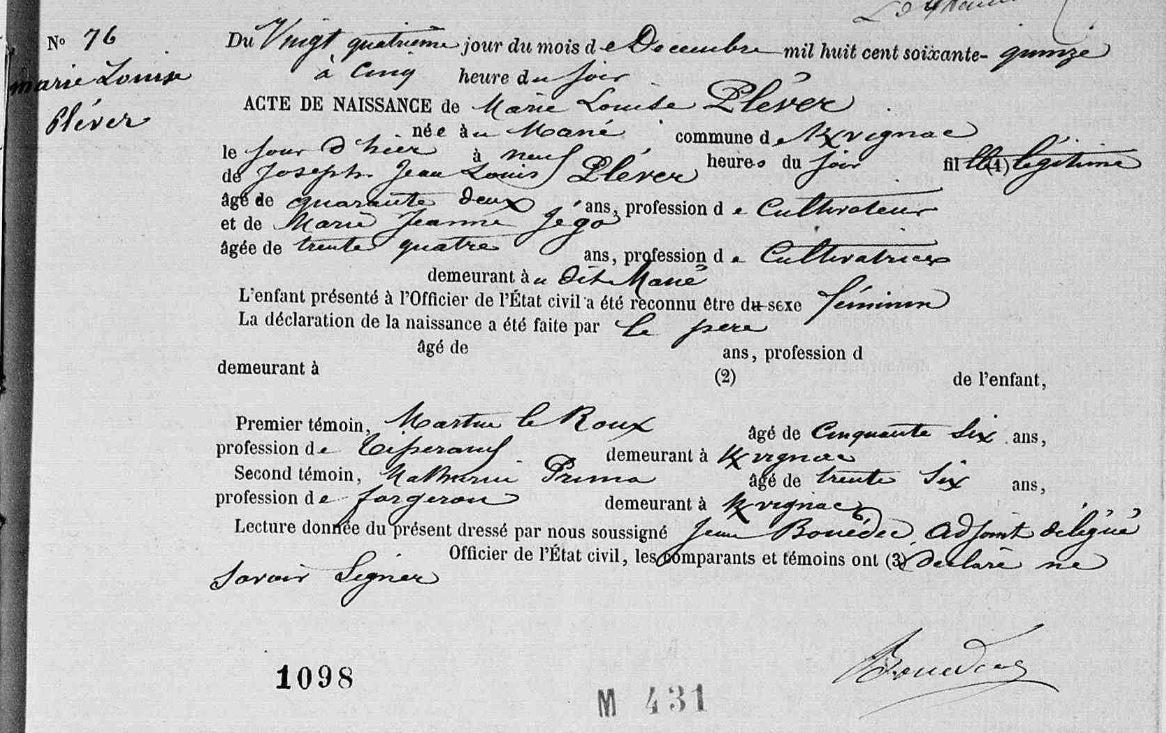 Nº 76
marie Louise
Pléver
Du Vingt quatrième jour du mois de Decembre mil huit cent soixante-quinze
à Cinq heure du soir
ACTE DE NAISSANCE de Marie Louise Pléver
née à u Mané commune de Kvignac
le jour d'hier à neuf heures du soir fille (1) légitime
de Joseph Jean Louis Pléver
âgé de quarante deux ans, profession de Cultivateur
et de Marie Jeanne Jégo
âgée de trente quatre ans, profession de Cultivatrice
demeurant à u dit Mané
L'enfant présenté à l'Officier de l'État civil a été reconnu être du sexe féminin
La déclaration de la naissance a été faite par le père
âgé de ans, profession d
demeurant à (2) de l'enfant,
Premier témoin, le Roux âgé de Cinquante Six ans,
profession de demeurant à Kvignac
Second témoin, Mathurin Prima âgé de trente Six ans,
profession de forgeron demeurant à Kvignac
Lecture donnée du présent dressé par nous soussigné Jean Bouédec, adjoint délégué
Officier de l'État civil, les comparants et témoins ont (3) declaré ne
savoir Signer
Bouedec
1098
M 431